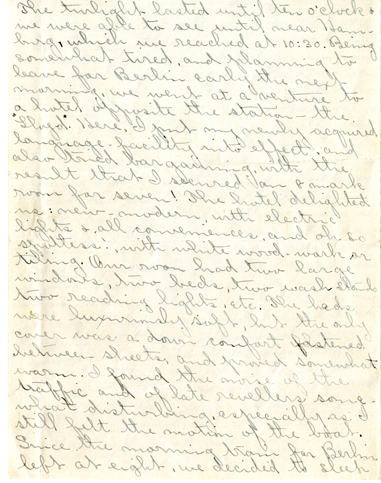 The twilight lasted until ten o'clock &
we were able to see until near Ham-
burg, which we reached at 10:30. Being
somewhat tired, and planning to
leave for Berlin early the next
morning, we went at a venture to
a hotel opposite the station - the
"Lloyd". Here, I put my newly acquired
language facility into effect, and
also tried bargaining, with the
result that I secured an 8 mark
room for seven! The hotel delighted
us: new - modern, with electric
lights & all conveniences, and oh - so
spotless!, with white wood-work or
tiling. Our room had two large
windows, two beds, two wash stands
two reading lights, etc. The beds
were luxuriously soft, but the only
cover was a down comfort fastened
between sheets, and proved somewhat
warm. I found the noise of the
traffic and of late revellers some-
what disturbing, especially as I
still felt the motion of the boat.
Since the morning train for Berlin
left at eight, we decided to sleep